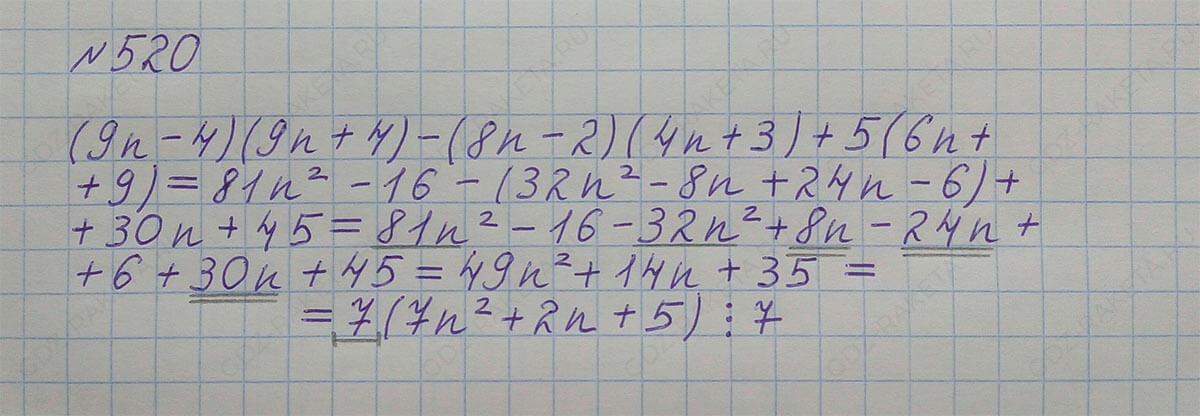 №520
(9n-4)(9n+4)-(8n-2)(4n+3)+5(6n+
+9)=81n²-16-(32n²-8n+24n-6)+
+30n+45=81n²-16-32n²+8n-24n+
+6+30n+45=49n²+14n+35=
=7(7n²+2n+5)⋮7